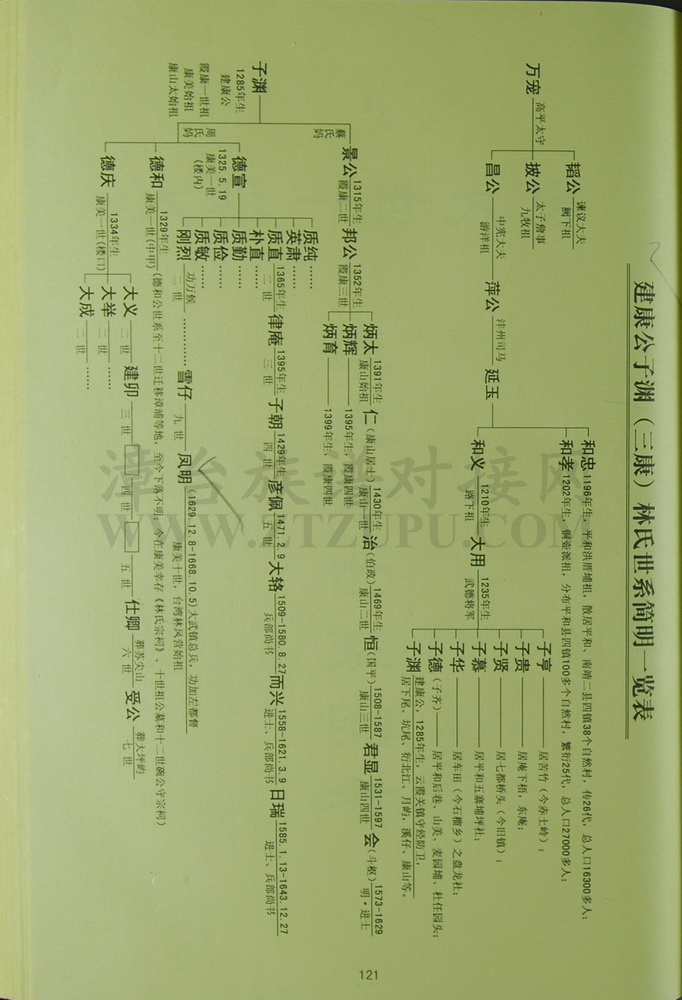 建康公子渊（三康）林氏世系简明一览表
韬公 谏议大夫 阙下祖
万宠 高平太守
披公 太子詹事 九牧祖
昌公 中宪大夫 游洋祖
萍公 沣州司马
延玉
和忠 1196年生，平和洪厝埔祖，散居平和、南靖二县四镇38个自然村，传26代，总人口16300多人；
和孝 1202年生，铜壶派祖，分布平和县四镇100多个自然村，繁衍25代，总人口27000多人；
和义 1210年生 路下祖
大用 1235年生 武德将军
子亨 居苦竹（今赤土岭）；
子贵 居庵下梧，东庵；
子贤 居七都桥头（今旧镇）；
子慕 居平和五寨埔坪社；
子华 居车田（今石榴乡）之盘龙社；
子德（子齐） 居平和后巷、山美、麦园埔、杜任园头；
子渊 建康公，1285年生，云霄关镇守经防卫，
居下尾，坑尾、衍北江、月屿，溪仔、康山等。
子渊 1285年生 建康公
霞康一世祖
康美始祖
康山太始祖
蔡氏妈
周氏妈
景公 1315年生 霞康二世
邦公 1352年生 霞康三世
炳太 1391年生 康山始祖
仁（康山居士） 1430年生 康山一世
治（伯政） 1469年生 康山二世
恒（国平） 1508-1587 康山三世
君显 1531-1597 康山四世
会（斗枢） 1573-1629 明·进士
炳辉 1395年生，霞康四世
炳育 1399年生，霞康四世
德宣 1325.5.19 康美一世（楼内）
质纯……
英肃……
质直 1365年生 二世
律庵 1395年生 三世
子朝 1429年生 四世
彦佩 1471.2.9 五世
大辂 1509-1580.8.27 兵部尚书
而兴 1558-1621.3.9 进士、兵部尚书
日瑞 1585.1.13-1643.12.27 进士、兵部尚书
朴直……
质勤……
质俭……
质敏……
刚烈 功万候 二世
雪仔 九世
凤明 （1629.12.8-1668.10.5）大武镇总兵，功加左都督
康美十世，台湾林凤营始祖
德和 1329年生 康美一世（中甲）
（德和公世系至十二世迁移漳浦等地，至今下落不明，今在康美幸存《林氏宗祠》、十世祖公墓和十二世碗公守宗祠）
德庆 1334年生 康美一世（楼口）
大义 二世
建卯 三世
四世
五世
仕卿 葬苏尖山 六世
受公 葬大坪的 七世
大举 二世……
大成 二世……
漳台族谱对接网
WWW.ZTZUPU.COM
121